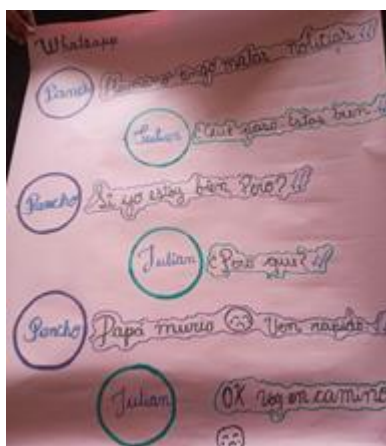 Whatsapp
Pancho Hermano tengo malas noticias
Julian ¿Qué paso estas bien
Pancho Si yo estoy bien Pero?
Julian ¿Pero que?
Pancho Papá murio Ven rapido
Julian OK voy en camino